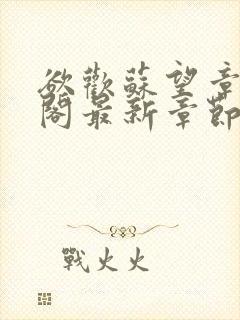 欲歡蘇望章
閣最新章節
戰火火